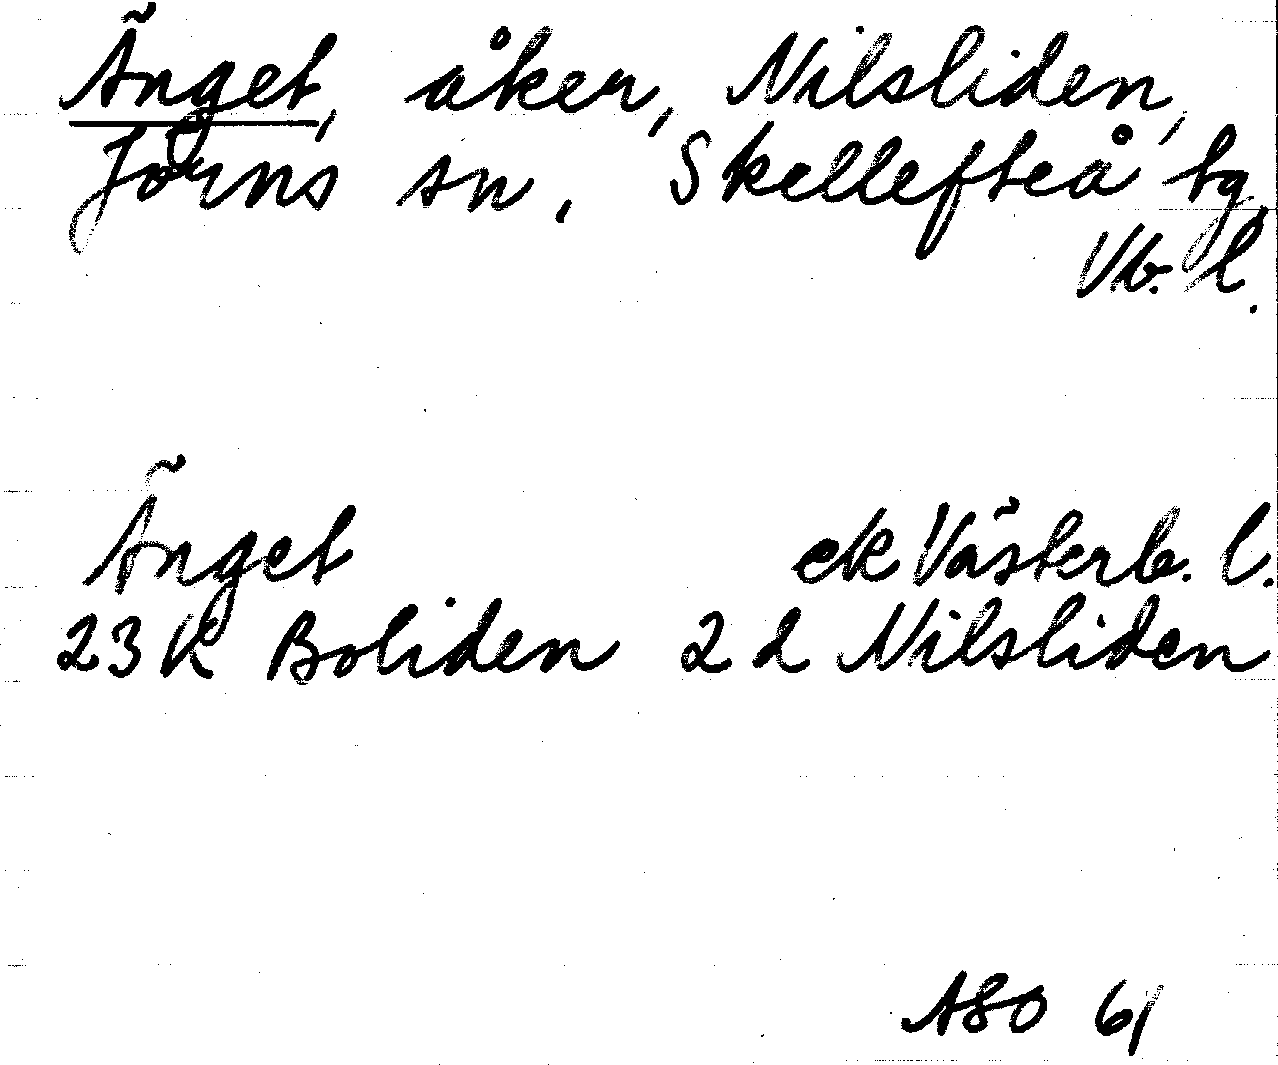 Änget, åker, Nilsliden,
Jörns sn, Skellefteå tg,
Vb. l.
Änget ek Västerb. l.
23 K Boliden 2 d Nilsliden
ASO 61